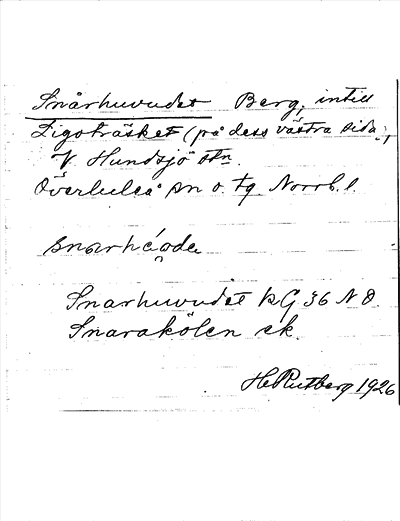 Snårhuvudet Berg, intill
Zigoträsket (på dess västra sida),
V. Hundsjö stn.
Överluleå sn o. tg Norrb. l.
snarhéode
Snarhuvudet kG 36 N O.
Snarakölen ek.
H. Rutberg 1926